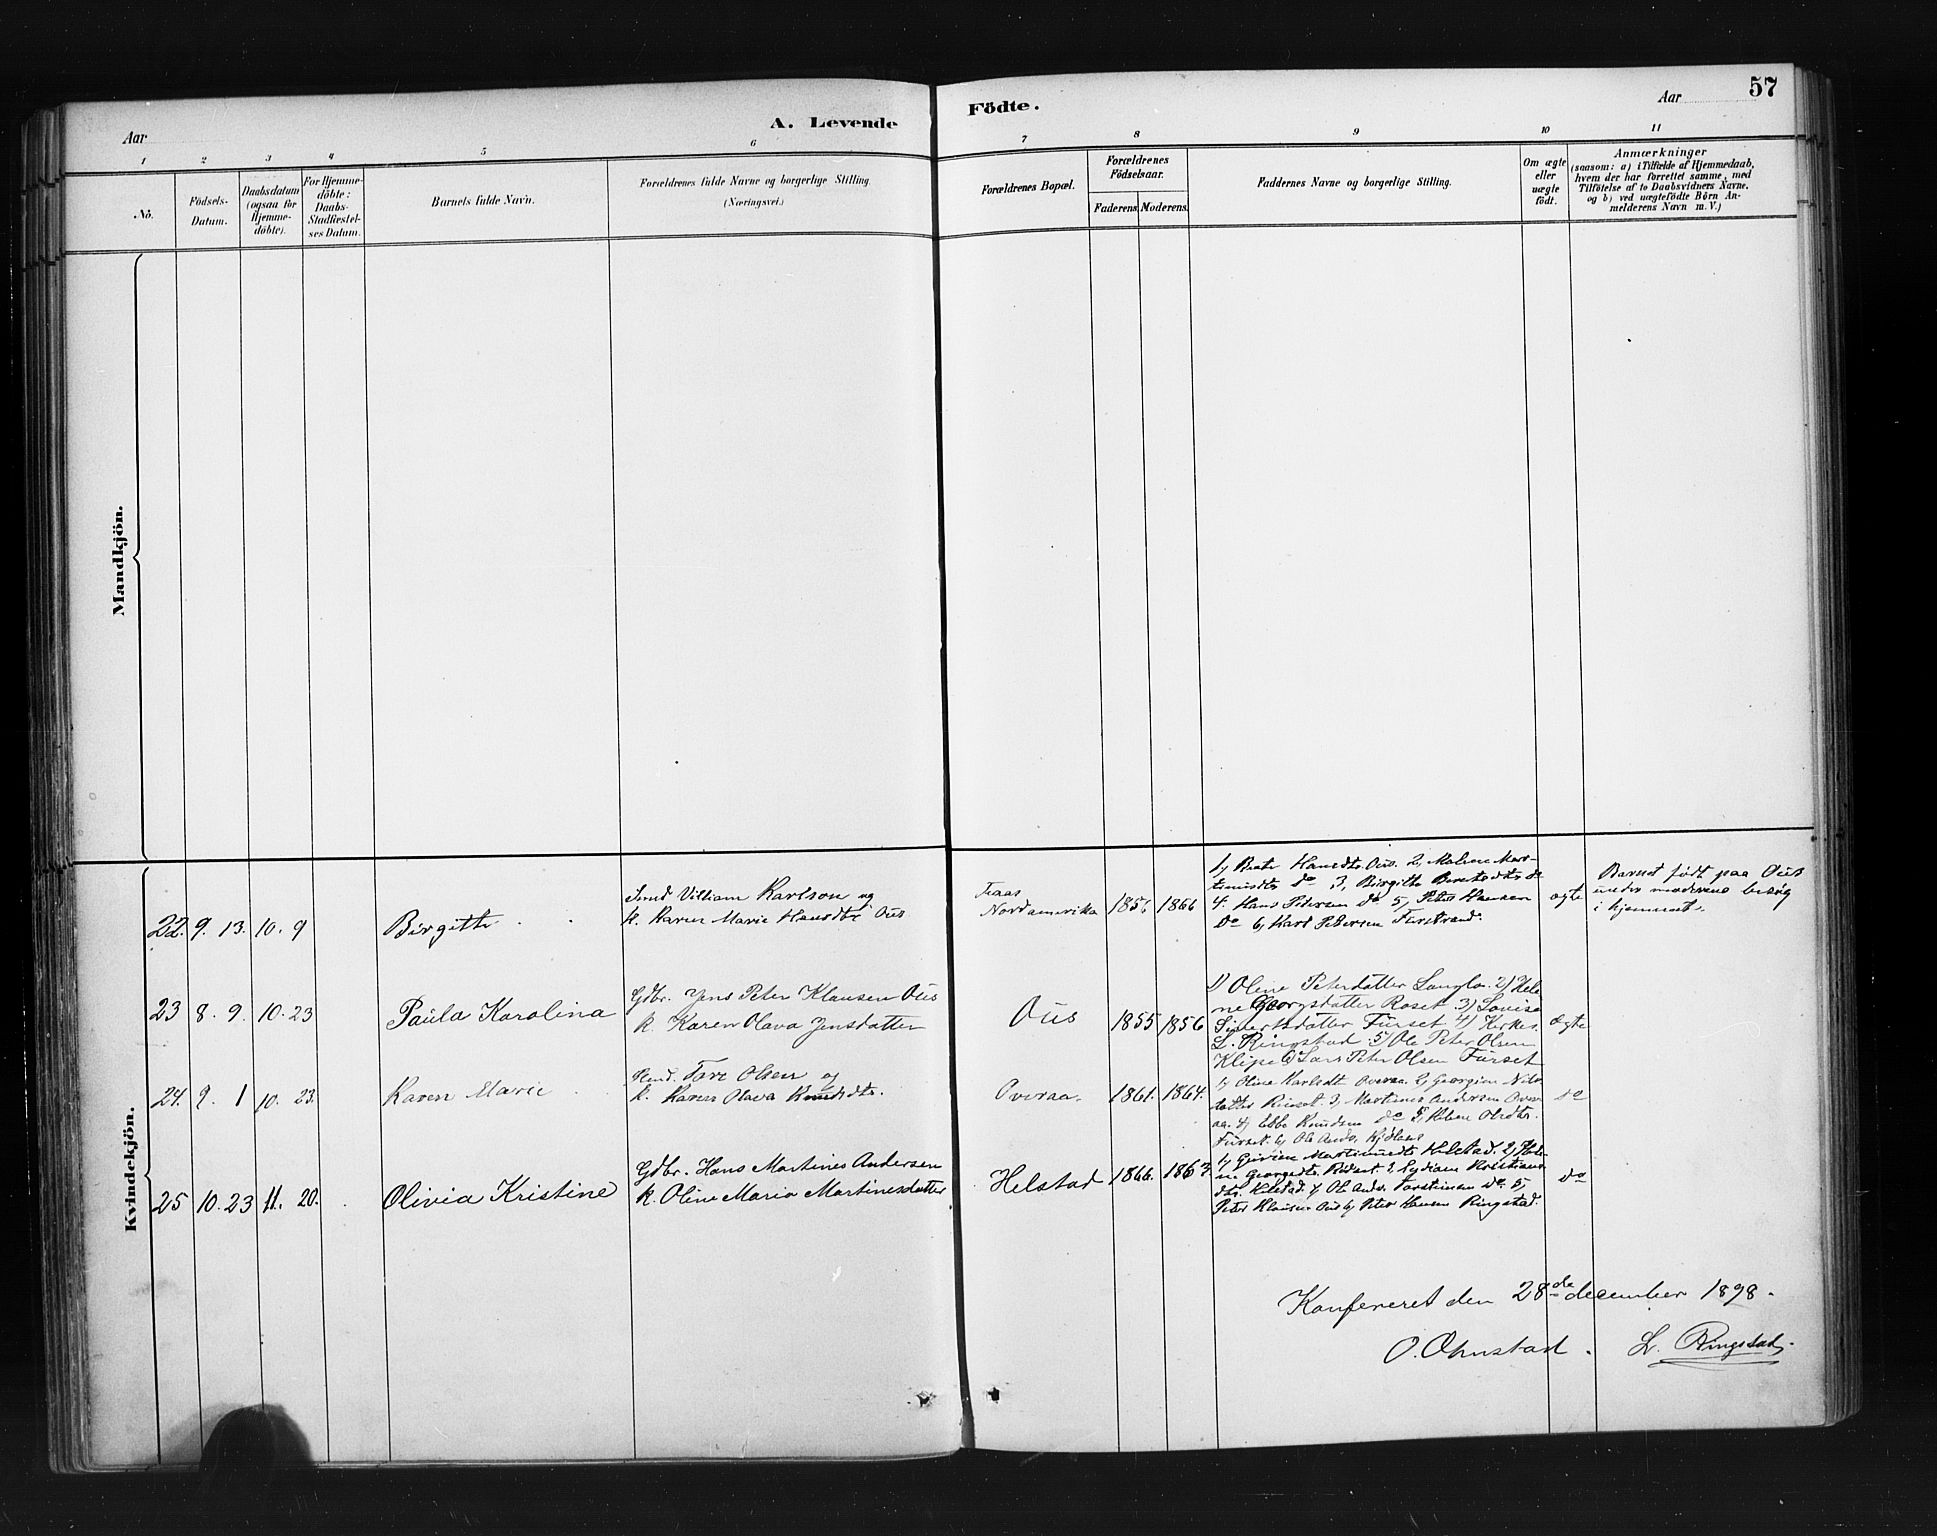 57
Aar
A. Levende
Födte.
Aar
1
2
3
4
5
6
7
8
9
10
11
No.
Födsels-
Datum.
Daabsdatum
(ogsaa for
Hjemme-
döbte).
For Hjemme-
döbte:
Daabs-
Stadfæstel-
ses Datum.
Barnets fulde Navn.
Forældrenes fulde Navne og borgerlige Stilling.
(Næringsvei.)
Forældrenes Bopæl.
Forældrenes
Födselsaar.
Faderens.
Moderens.
Faddernes Navne og borgerlige Stilling.
Om ægte
eller
uægte
födt.
Anmærkninger
(saasom: a) i Tilfælde af Hjemmedaab,
hvem der har forrettet samme, med
Tilföielse af to Daabsvidners Navne,
og b) ved uægtefödte Börn An-
melderens Navn m. V.)
Mandkjön.
Kvindekjön.
22. 9. 13. 10. 9
Birgitte
Villiam Karlson og
k. Karen Marie Hansdtr Ous
Nordamerika
1856 1866
1, Berte Hansdtr. Ous. 2, Malene Mar-
tinusdtr do 3, Birgitte Berntsdtr do
4. Hans Petersen do 5, Peter Hansen
do 6, Karl Petersen Furstrand.
ægte
Barnet født paa Ous
under moderens besøg
i hjemmet.
23 8. 9. 10. 23
Paula Karolina
Gdbr. Jens Peter Klausen Ous
k. Karen Olava Jensdatter
Ous
1855 1856
1) Olene Petersdatter Langlo. 2) Hele-
ne Georgsdatter Roset. 3) Lovise
Sivertsdatter Furset 4) Kirkes.
L. Ringstad 5) Ole Peter Olsen
Klipe 6) Lars Peter Olsen Furset
Ægte
24. 9. 1 10. 23.
Karen Marie
Tore Olsen og
k. Karen Olava Knudsdtr.
Overaa.
1861. 1864.
1, Oline Karlsdt Overaa. 2, Georgine Nils-
datter 3, Martinus Andersen Over-
aa. 4, Ebbe Knudsen do 5, Olsdtr.
Furset. 6, Ole Ands.
do
25 10. 23 11. 20.
Olivia Kristine
Gdbr. Hans Martines Andersen
k. Oline Maria Martinesdatter
Helstad
1866. 1863.
1, Martinusdtr Helstad. 2, Hele-
ne Georgsdtr. 3, Lydian Kristians-
dtr. Helstad. 4, Ole Ands. Torstensen do. 5,
Peter Klausen Ous 6, Peter Hansen Ringstad.
do
Konfereret den 28de december 1898.
O. Ohnstad. L. Ringstad.